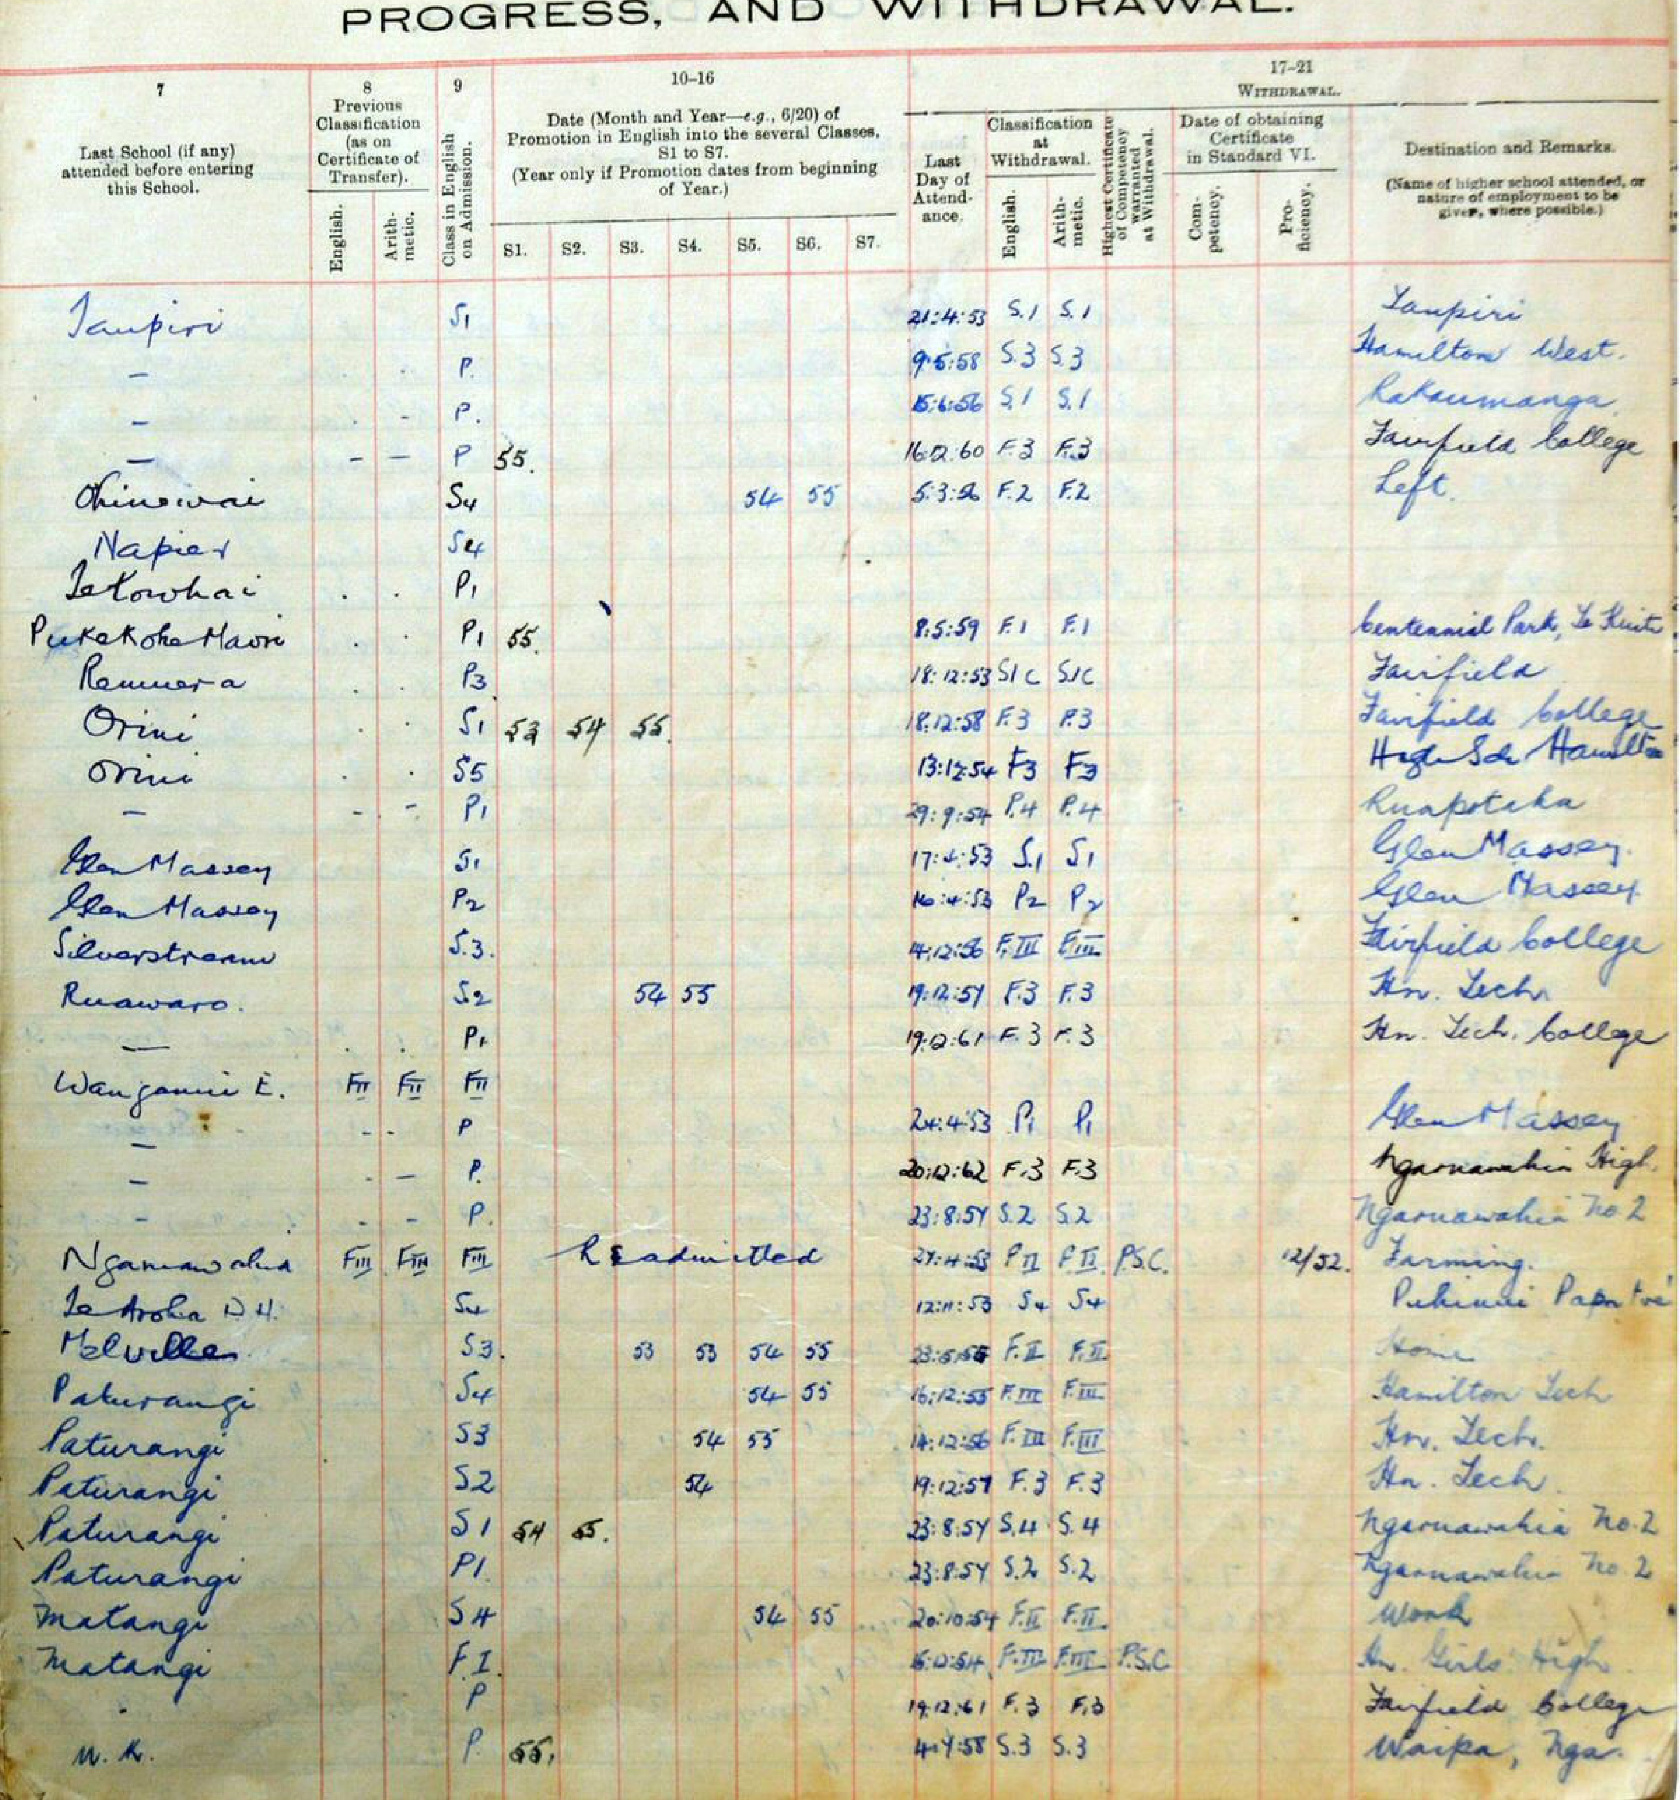 PROGRESS, AND WITHDRAWAL.
7 8 9 10–16 17–21
Last School (if any) attended before entering this School.
Previous Classification (as on Certificate of Transfer).
English. Arith-metic.
Class in English on Admission.
Date (Month and Year—e.g., 6/20) of Promotion in English into the several Classes, S1 to S7.
(Year only if Promotion dates from beginning of Year.)
S1. S2. S3. S4. S5. S6. S7.
WITHDRAWAL.
Last Day of Attend-ance.
Classification at Withdrawal.
English. Arith-metic.
Highest Certificate of Competency warranted at Withdrawal.
Date of obtaining Certificate in Standard VI.
Com-petency. Pro-ficiency.
Destination and Remarks.
(Name of higher school attended, or nature of employment to be given, where possible.)
Taupiri S1 21:4:53 S.1 S.1 Taupiri
— P. 9:5:58 S.3 S.3 Hamilton West.
— P. 15:6:56 S.1 S.1 Rakaumanga
— - — P 55. 16:12:60 F.3 F.3 Fairfield College
Ohinewai S4 54 55 5:3:56 F.2 F.2 Left.
Napier S4
Te Kowhai P1
Pukekohe Maori P1 55. 8:5:59 F.1 F.1 Centennial Park, Te Kuiti
Remuera P3 18:12:53 S1C S1C Fairfield
Orini S1 53 54 55. 18:12:58 F.3 F.3 Fairfield College
Orini S5 13:12:54 F3 F3 High Sch Hamilton
— - - P1 29:9:54 P.4 P.4 Ruapoteka
Glen Massey S1 17:4:53 S.1 S1 Glen Massey.
Glen Massey P2 16:4:53 P2 P2 Glen Massey.
Silverstream S.3. 14:12:56 F.III F.III Fairfield College
Ruawaro. S2 54 55 19:12:57 F.3 F.3 Hn. Tech.
— P1 19:12:61 F.3 F.3 Hn. Tech. College
Wanganui E. FII FII FII
— - - P 24:4:53 P1 P1 Glen Massey
— - — P. 20:12:62 F.3 F.3 Ngaruawahia High.
- - - P. 23:8:57 S.2 S.2 Ngaruawahia No 2
Ngaruawahia FIII FIII FIII Readmitted 27:4:53 FII FII P.S.C. 12/52. Farming.
Te Aroha D.H. S4 12:11:53 S4 S4
Melville S3. 53 53 54 55 F.II F.II Home
Paturangi S4 54 55 16:12:55 F.III F.III Hamilton Tech
Paturangi S3 54 55 14:12:56 F.III F.III Hn. Tech.
Paturangi S2 54 19:12:57 F.3 F.3 Hn. Tech.
Paturangi S1 54 55. 23:8:57 S.4 S.4 Ngaruawahia No. 2
Paturangi P1. 23:8:57 S.2 S.2 Ngaruawahia No. 2
Matangi S4 54 55 20:10:54 F.II F.II Work
Matangi F.I. F.III F.III P.S.C. Hn. Girls High.
P 19:12:61 F.3 F.3 Fairfield College
P. 55. S.3 S.3 Waipa, Nga.